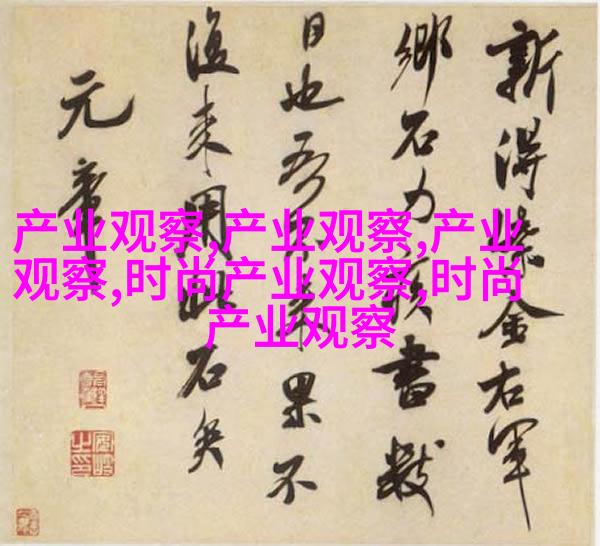 新得紫金右軍
鄉石力疾書數
日也吾不來果不
復來用此石矣
元章
产业观察,产业观察,产业
观察,时尚产业观察,时尚
产业观察